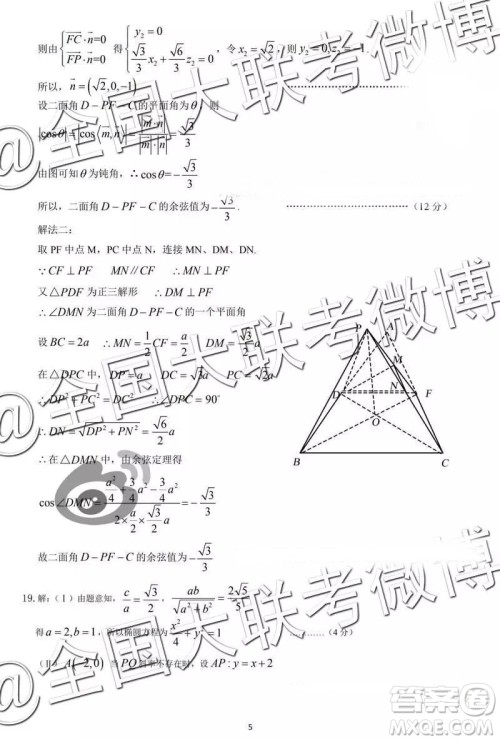 则由{FC·n=0 FP·n=0 得{y₂=0 √3/3 x₂+√6/3 z₂=0 ，令 x₂=√2，则 y₂=0,z₂=-1
所以，n=(√2,0,-1)
设二面角 D-PF-C 的平面角为θ，则
|cosθ|=|cos⟨m,n⟩|=|m·n|/|m|·|n|=√3/3
由图可知θ为钝角，∴cosθ=-√3/3
所以，二面角 D-PF-C 的余弦值为-√3/3. （12分）
解法二：
取 PF 中点 M，PC 中点 N，连接 MN、DM、DN.
∵CF⊥PF MN∥CF ∴MN⊥PF
又△PDF 为正三角形 ∴DM⊥PF
∴∠DMN 为二面角 D-PF-C 的一个平面角
设 BC=2a ∴MN=1/2 CF=a/2 DM=√3/2 a
在△DPC 中，DP=a DC=√3a PC=√2a
∴DP²+PC²=DC² ∴∠DPC=90°
∴DN=√DP²+PN²=√6/2 a
∴在△DMN 中，由余弦定理得
cos∠DMN=(a²/4+3/4 a²-3/2 a²)/(2×a/2×√3/2 a)=-√3/3
故二面角 D-PF-C 的余弦值为-√3/3
P
A
M
D
N
F
O
B
C
19.解：（1）由题意知，c/a=√3/2，ab/√a²+b²=2√5/5
得 a=2,b=1，所以椭圆方程为 x²/4+y²=1 （4分）
(Ⅱ) A(-2,0) 当 PQ 斜率不存在时，设 AP:y=x+2
5
@全国大联考微博
@全国大联考微博
答案圈
MXQE.COM